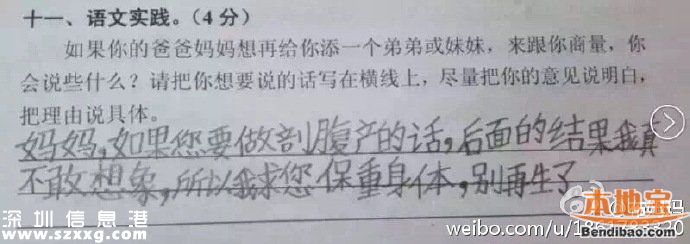 十一、语文实践。(4分)
如果你的爸爸妈妈想再给你添一个弟弟或妹妹，来跟你商量，你
会说些什么？请把你想要说的话写在横线上，尽量把你的意见说明白，
把理由说具体。
妈妈，如果您要做剖腹产的话，后面的结果我真
不敢想象，所以我求您保重身体，别再生了
深圳信息港
www.szxxg.com
weibo.com/u/
本地宝
Bendibao.com